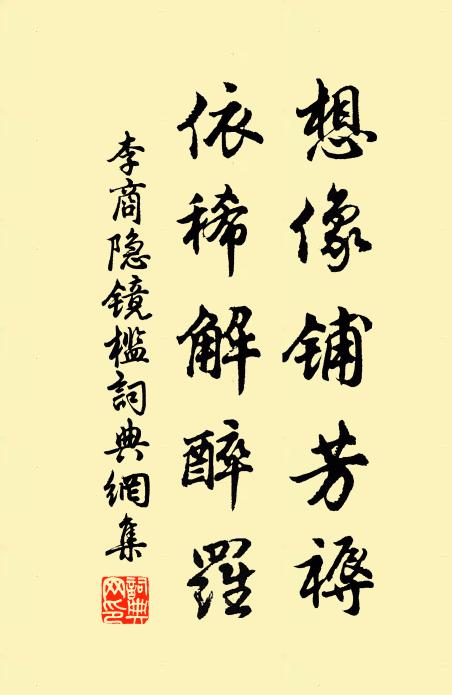 想像铺芳褥
依稀解醉罗
李商隐镜槛詞典網集
詞典网印